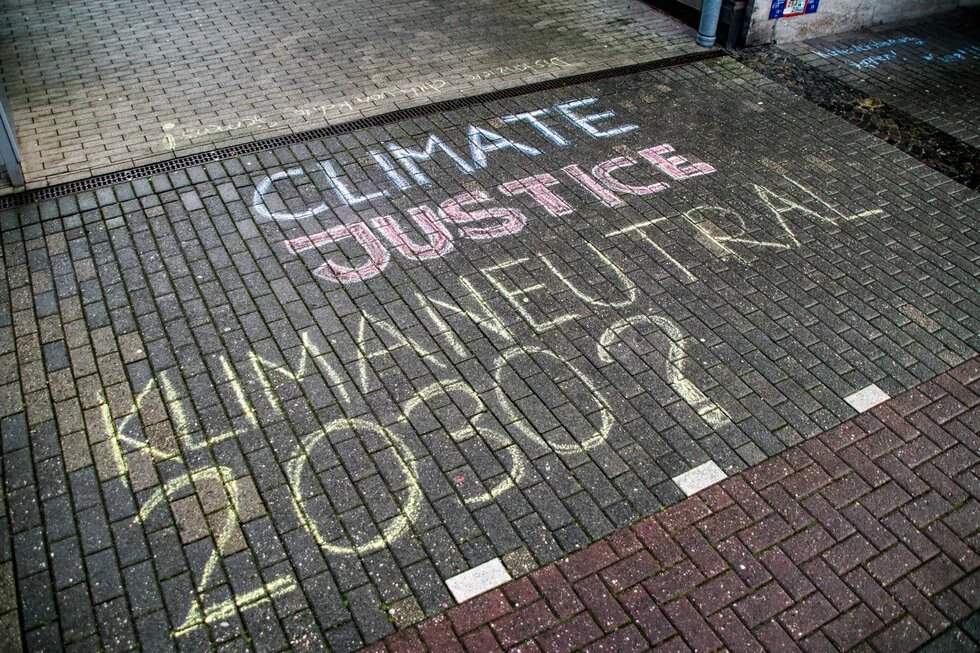 CLIMATE
JUSTICE
KLIMANEUTRAL
2030?